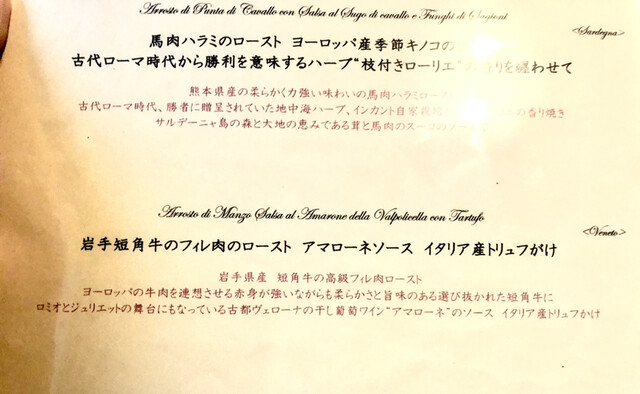 Arrosto di Punta di Cavallo con Salsa al Sugo di cavallo e Funghi di Stagioni
<Sardegna>
馬肉ハラミのロースト ヨーロッパ産季節キノコの
古代ローマ時代から勝利を意味するハーブ“枝付きローリエ”の香りを纏わせて
熊本県産の柔らかく力強い味わいの馬肉ハラミロースト
古代ローマ時代、勝者に贈呈されていた地中海ハーブ、インカント自家栽培 の香り焼き
サルデーニャ島の森と大地の恵みである茸と馬肉のスーゴの
Arrosto di Manzo Salsa al Amarone della Valpolicella con Tartufo
<Veneto>
岩手短角牛のフィレ肉のロースト アマローネソース イタリア産トリュフがけ
岩手県産 短角牛の高級フィレ肉ロースト
ヨーロッパの牛肉を連想させる赤身が強いながらも柔らかさと旨味のある選び抜かれた短角牛に
ロミオとジュリエットの舞台にもなっている古都ヴェローナの干し葡萄ワイン“アマローネ”のソース イタリア産トリュフがけ